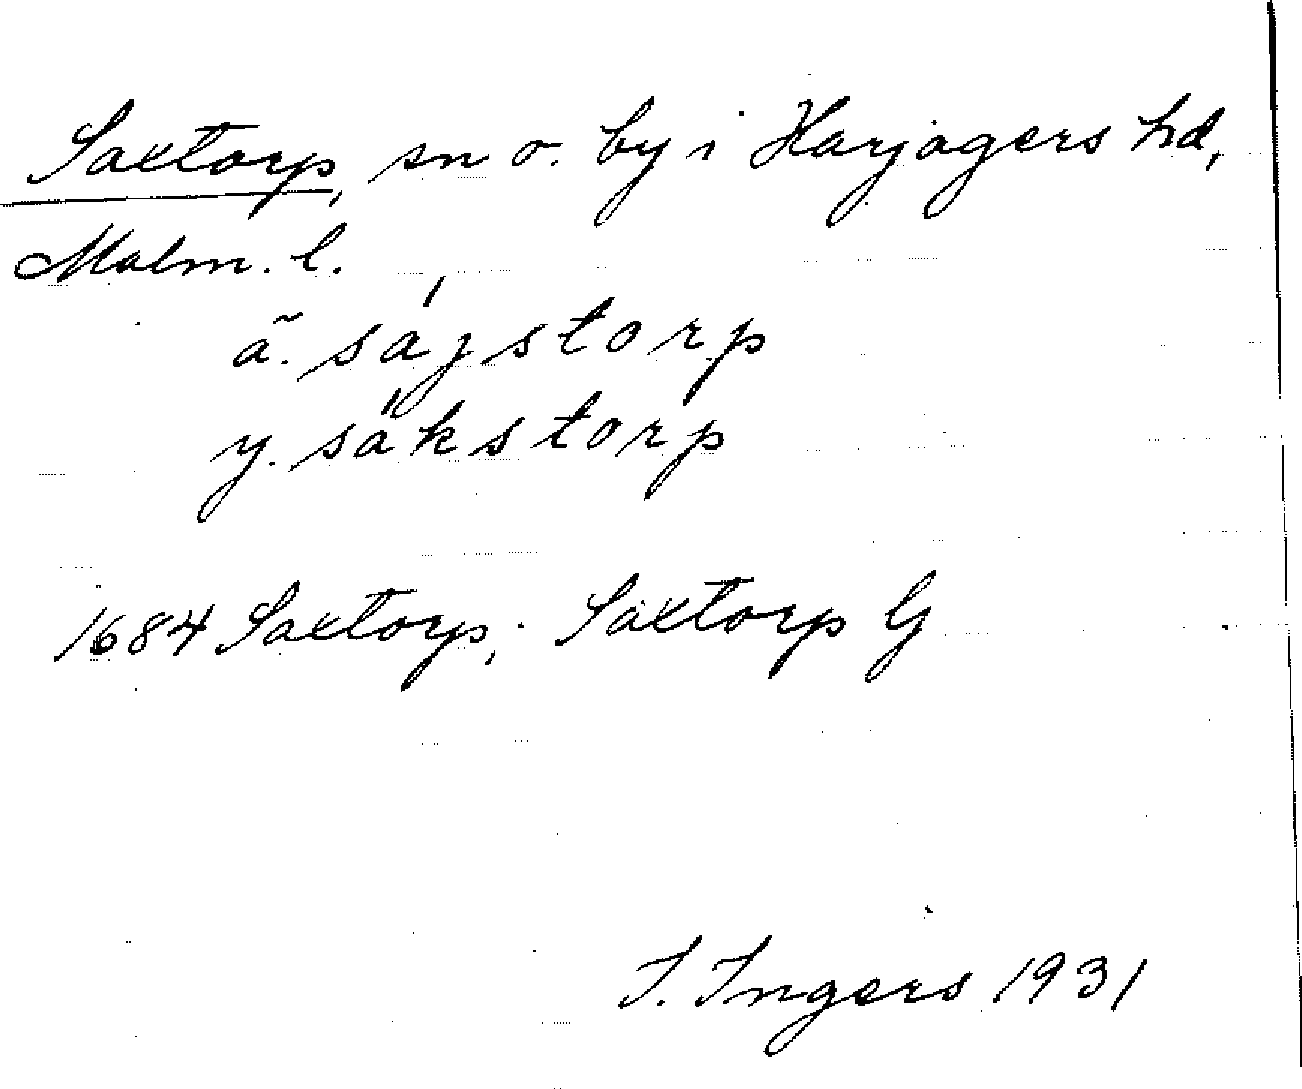 Saxtorp, sn o. by i Harjagers hd,
Malm. l.
ä. ságstorp
y. sákstorp
1684 Saxtorp, Saxtorp G
I. Ingers 1931